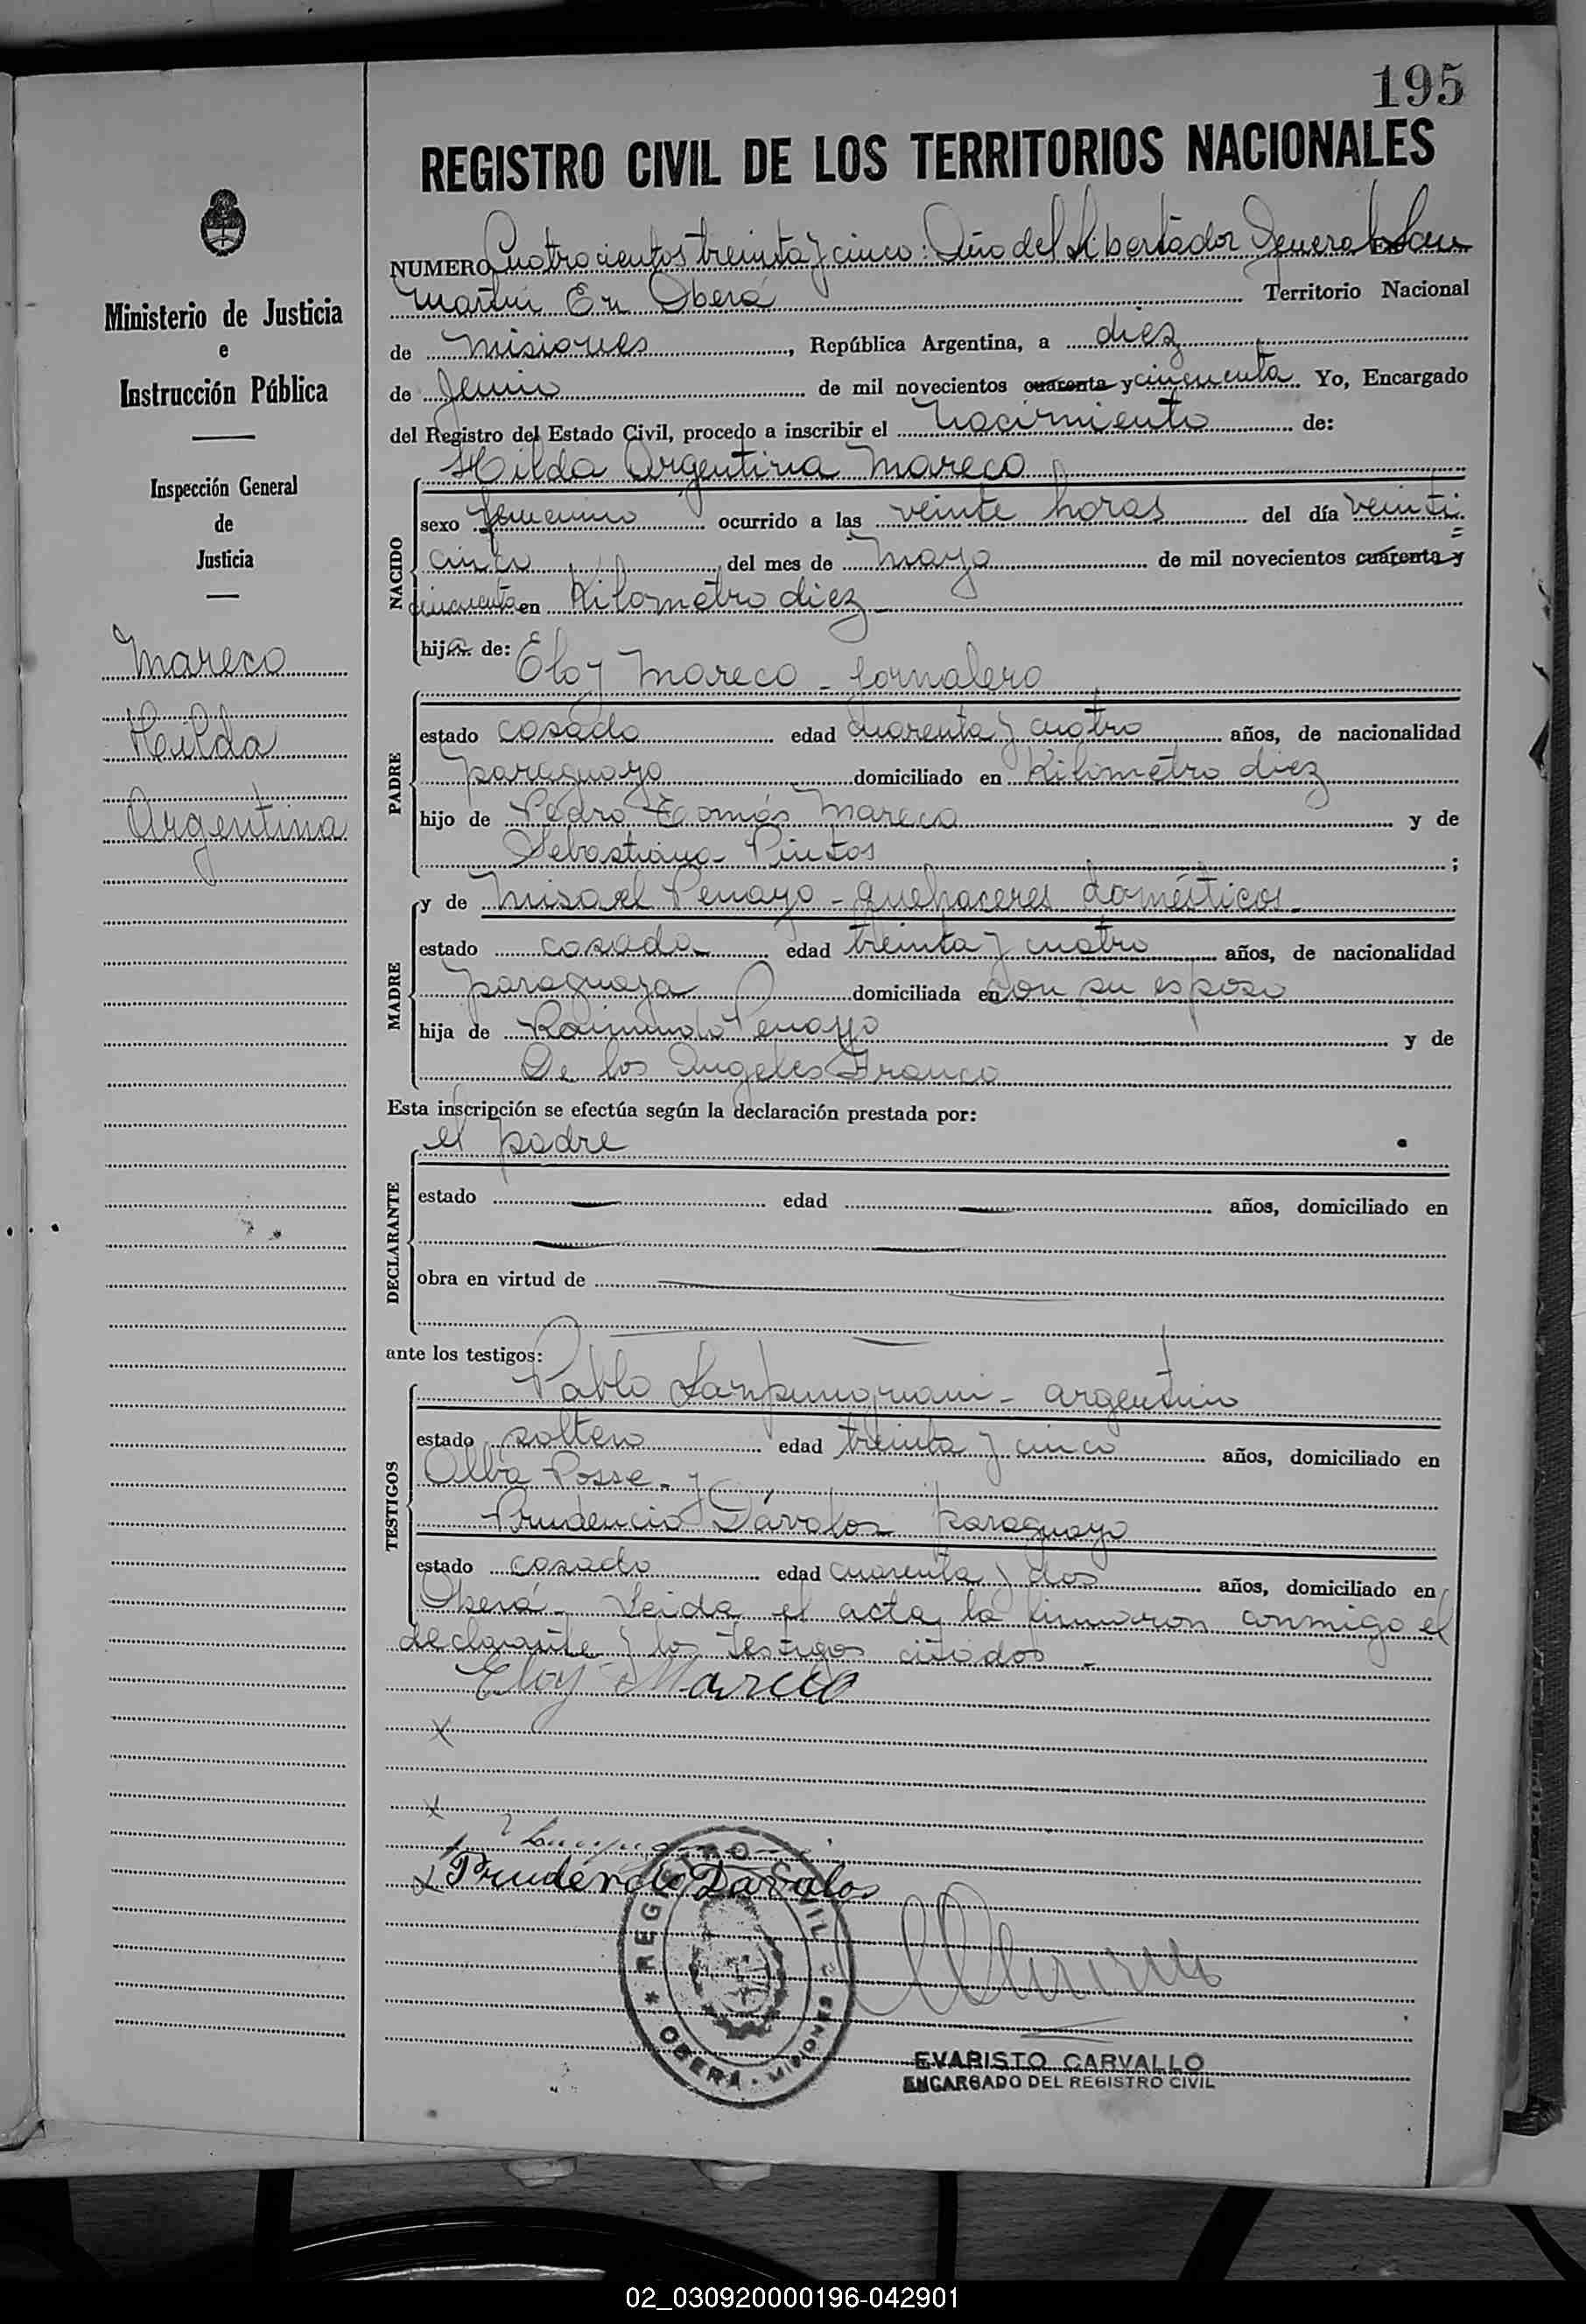 195
REGISTRO CIVIL DE LOS TERRITORIOS NACIONALES
NUMERO Cuatrocientos treinta y cinco: Año del Libertador General San
Martín En Oberá Territorio Nacional
de Misiones, República Argentina, a diez
de Junio de mil novecientos cuarenta y cincuenta Yo, Encargado
del Registro del Estado Civil, procedo a inscribir el nacimiento de:
Hilda Argentina Mareco
NACIDO
sexo femenino ocurrido a las veinte horas del día veinti=
cinco del mes de Mayo de mil novecientos cuarenta y
cincuenta en Kilometro diez
hija de: Eloy Mareco - Jornalero
PADRE
estado casado edad cuarenta y cuatro años, de nacionalidad
paraguayo domiciliado en Kilometro diez
hijo de Pedro Tomás Mareco y de
Sebastiana Pintos ;
y de Misael Penayo - quehaceres domésticos
MADRE
estado casada edad treinta y cuatro años, de nacionalidad
paraguaya domiciliada en con su esposo
hija de Raimundo Penayo y de
De los Angeles Franco
Esta inscripción se efectúa según la declaración prestada por:
el padre
DECLARANTE
estado edad años, domiciliado en
obra en virtud de
ante los testigos:
Pablo - argentino
TESTIGOS
estado soltero edad treinta y cinco años, domiciliado en
Alba Posse - y
Prudencio Dávalos paraguayo
estado casado edad cuarenta y dos años, domiciliado en
Oberá - Leida el acta, la firmaron conmigo el
declarante y los testigos citados -
Eloy Mareco
x
x
x Prudencio Davalos
REGISTRO CIVIL
* OBERA - MISIONES
EVARISTO CARVALLO
ENCARGADO DEL REGISTRO CIVIL
Ministerio de Justicia
e
Instrucción Pública
Inspección General
de
Justicia
Mareco
Hilda
Argentina
02_030920000196-042901